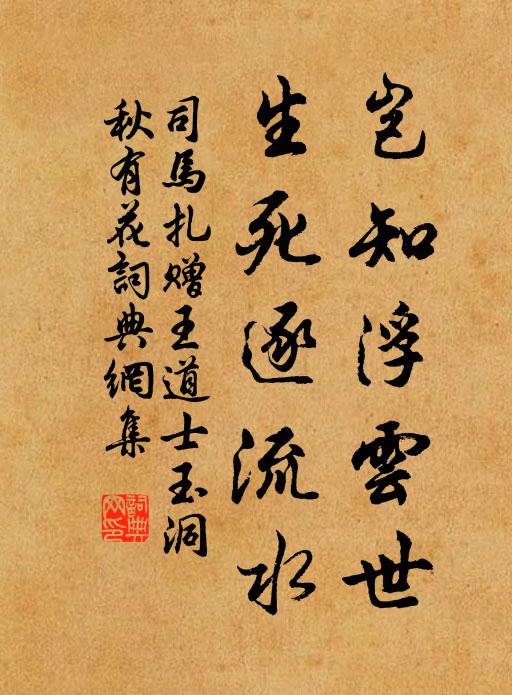 岂知浮雲世
生死逐流水
司馬扎赠王道士玉洞
秋有花詞典網集
詞典
网印